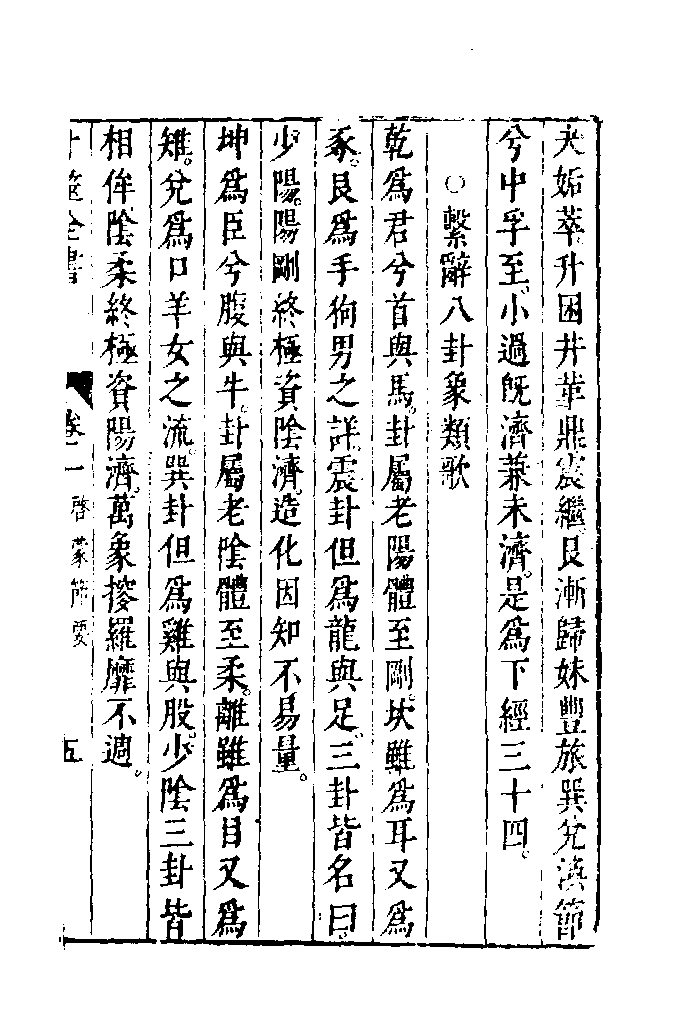 夬姤萃升困井革鼎震繼艮漸歸妹豐旅巽兌渙節
兮中孚至小過旣濟兼未濟。是爲下經三十四。
○繫辭八卦象類歌
乾爲君兮首與馬。卦屬老陽體至剛。坎雖爲耳又爲
豕。艮爲手狗男之詳。震卦但爲龍與足。三卦皆名曰。
少陽。陽剛終極資陰濟。造化因知不易量。
坤爲臣兮腹與牛。卦屬老陰體至柔。離雖爲目又爲
雉。兌爲口羊女之流。巽卦但爲雞與股。少陰三卦皆
相侔陰柔終極資陽濟。萬象摉羅靡不週。
卜筮全書 卷一 啓蒙節要 五